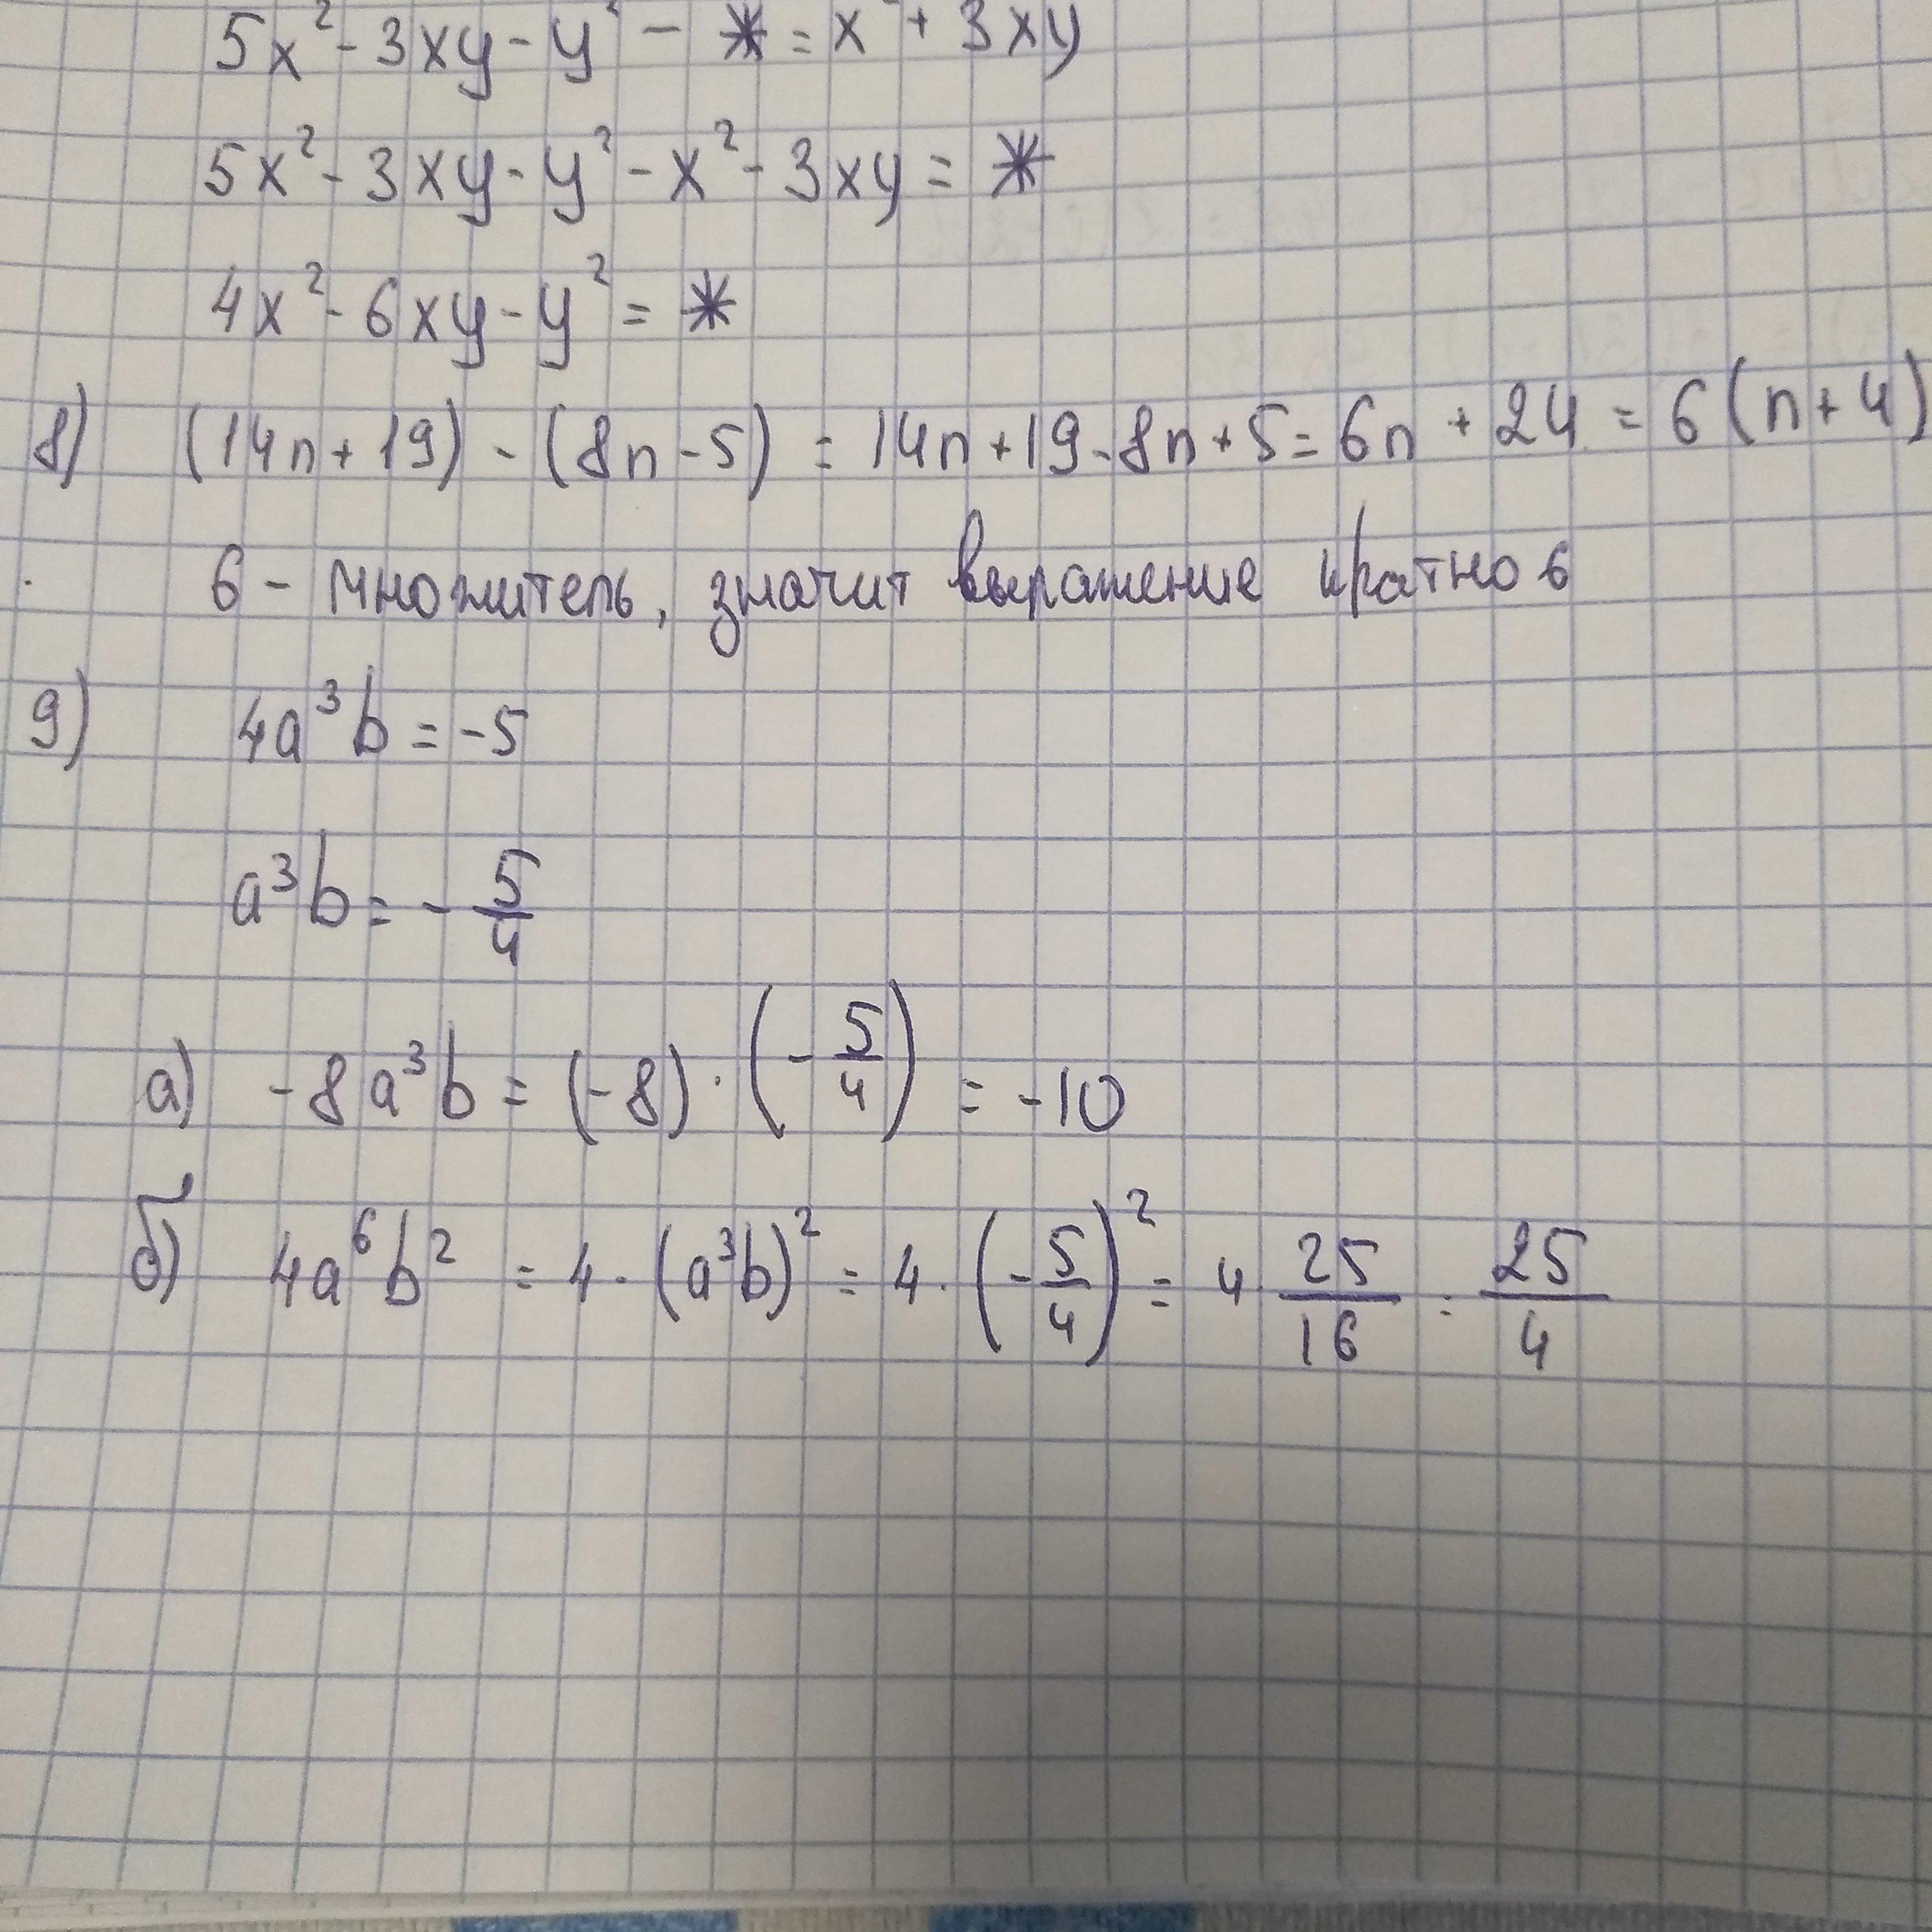 5x² - 3xy - y² - * = x² + 3xy
5x² - 3xy - y² - x² - 3xy = *
4x² - 6xy - y² = *
8) (14n + 19) - (8n - 5) = 14n + 19 - 8n + 5 = 6n + 24 = 6(n + 4)
6 - множитель, значит выражение кратно 6
9) 4a³b = -5
a³b = - 5/4
а) -8a³b = (-8) · (- 5/4) = -10
б) 4a⁶b² = 4 · (a³b)² = 4 · (- 5/4)² = 4 · 25/16 = 25/4